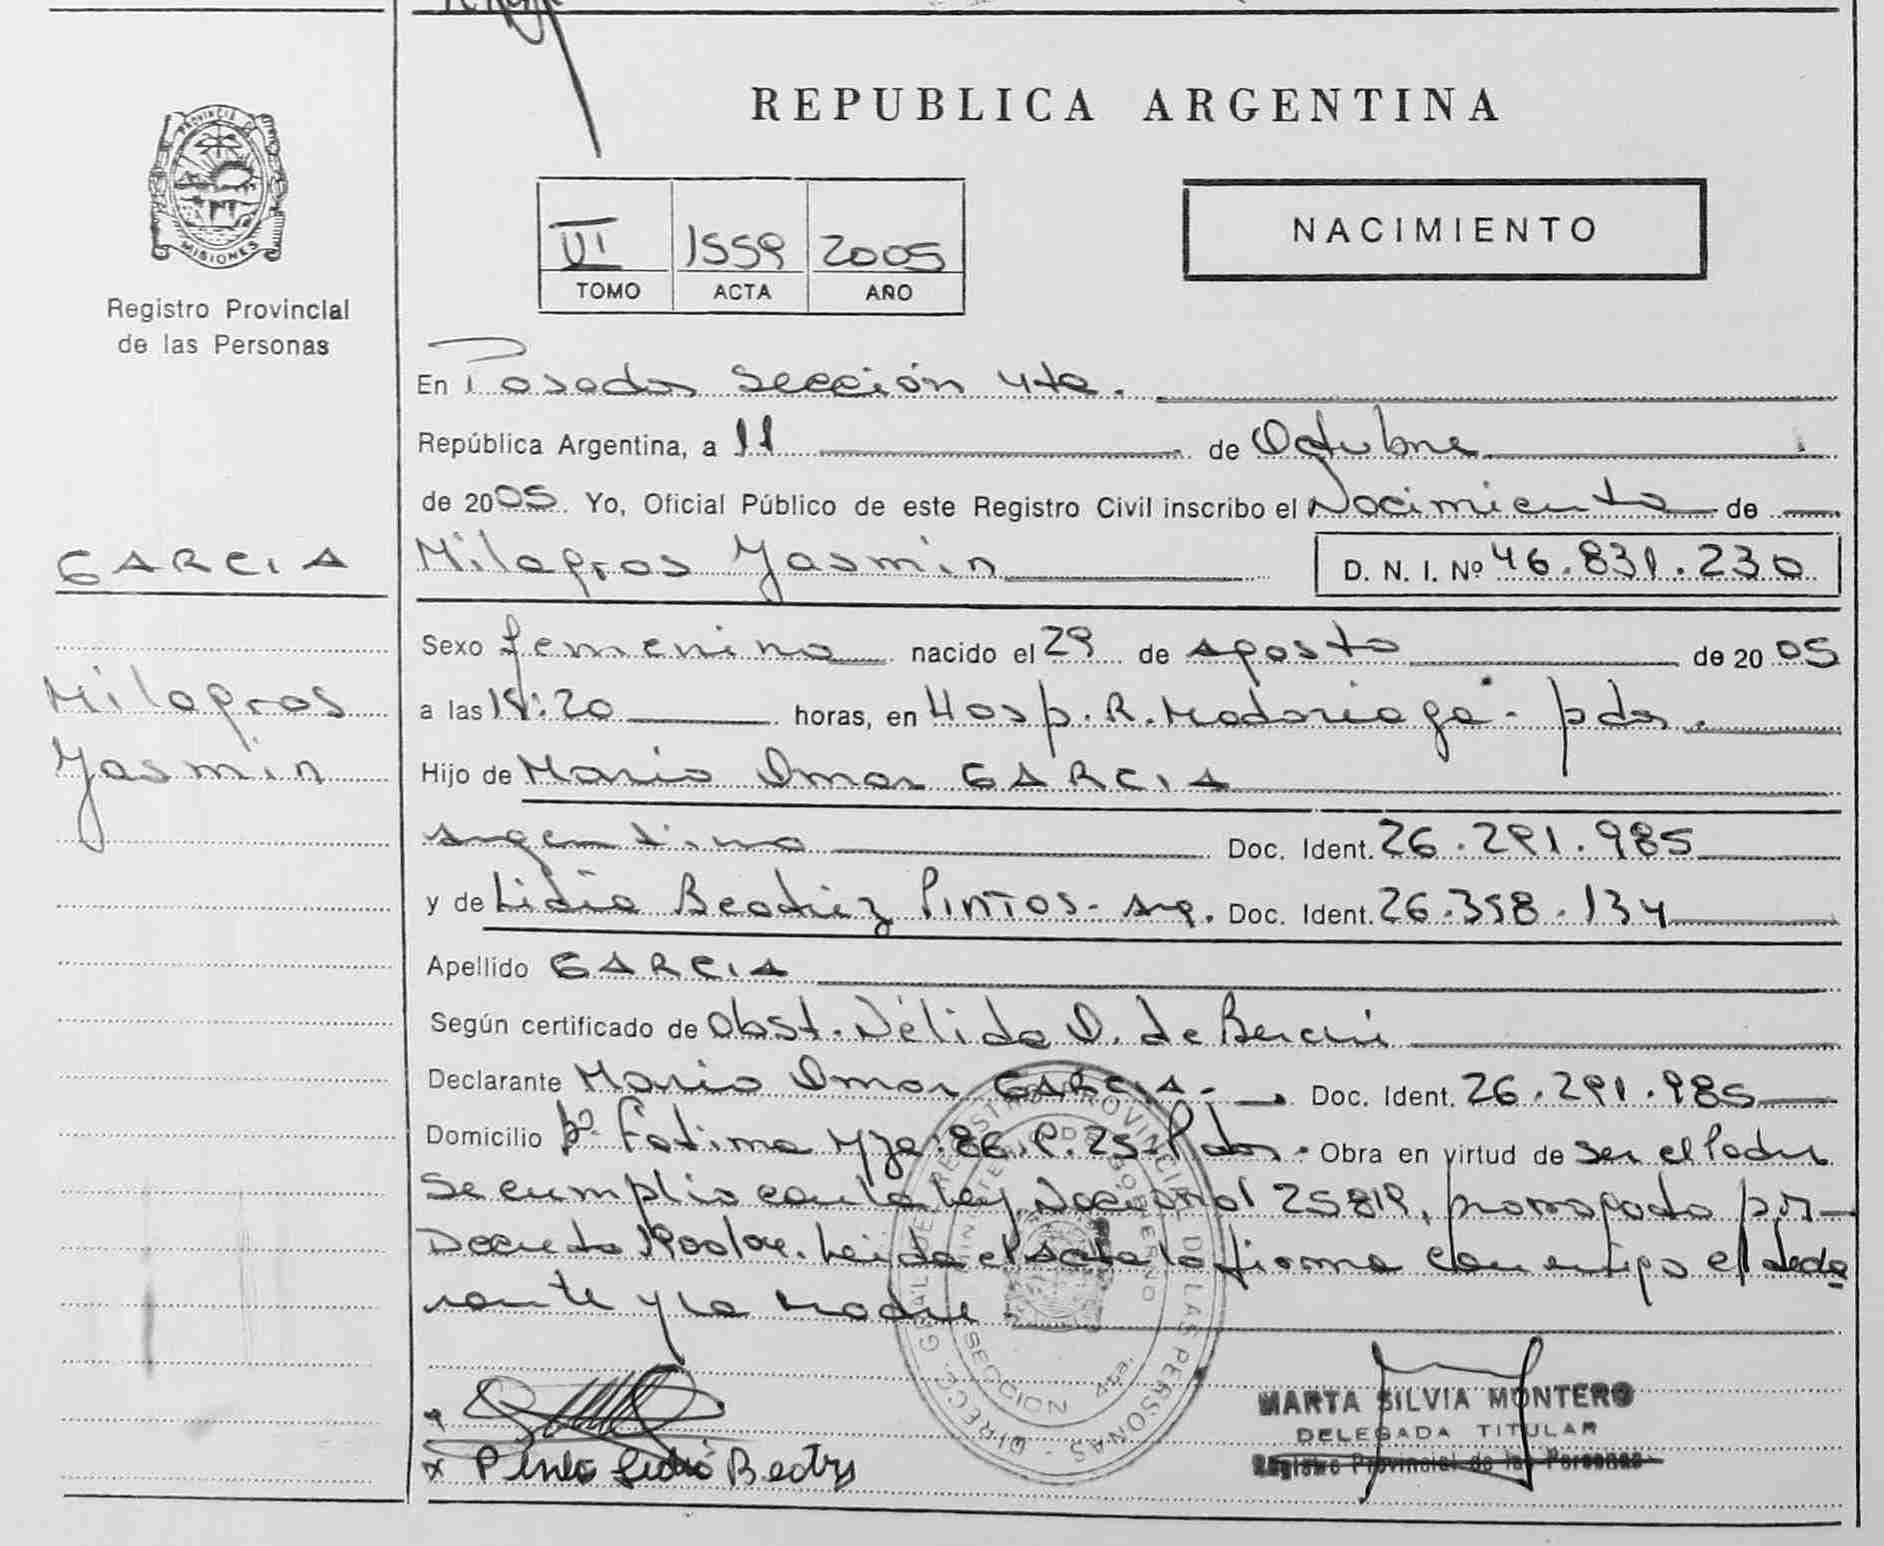 PROVINCIA DE
MISIONES
Registro Provincial
de las Personas
GARCIA
Milagros
Yasmin
REPUBLICA ARGENTINA
VI 1559 2005
TOMO ACTA AÑO
NACIMIENTO
En Posadas Sección 4ta.
República Argentina, a 11 de Octubre
de 2005. Yo, Oficial Público de este Registro Civil inscribo el Nacimiento de
Milagros Yasmin D. N. I. Nº 46.831.230
Sexo femenino nacido el 29 de agosto de 2005
a las horas, en Hosp. R. Madariaga - pdas.
Hijo de Mario Omar GARCIA
argentino Doc. Ident. 26.291.985
y de Lidia Beatriz PINTOS - arg. Doc. Ident. 26.358.134
Apellido GARCIA
Según certificado de Obst. Nélida O. de
Declarante Mario Omar GARCIA - Doc. Ident. 26.291.985
Domicilio Bº Fatima Mza: 86 P. 25 - Pdas. Obra en virtud de ser el Padre
Se cumplio con la Ley Nacional 25819, prorrogada por
Decreto 1900/04. Leida el acta la firma conmigo el decla
rante y la madre
DIRECC. GRAL. DE REGISTRO PROVINCIAL DE LAS PERSONAS
MINISTERIO DE GOBIERNO
SECCION 4ta.
x Pintos Lidia Beatriz
MARTA SILVIA MONTERO
DELEGADA TITULAR
Registro Provincial de las Personas